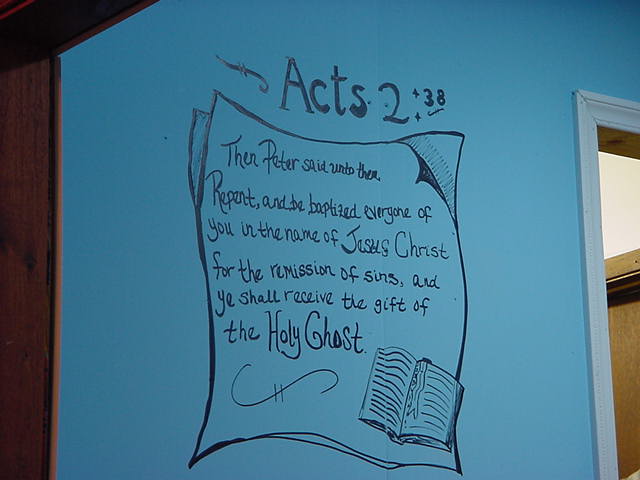 Acts 2:38
Then Peter said unto them,
Repent, and be baptized everyone of
you in the name of Jesus Christ
for the remission of sins, and
ye shall receive the gift of
the Holy Ghost.